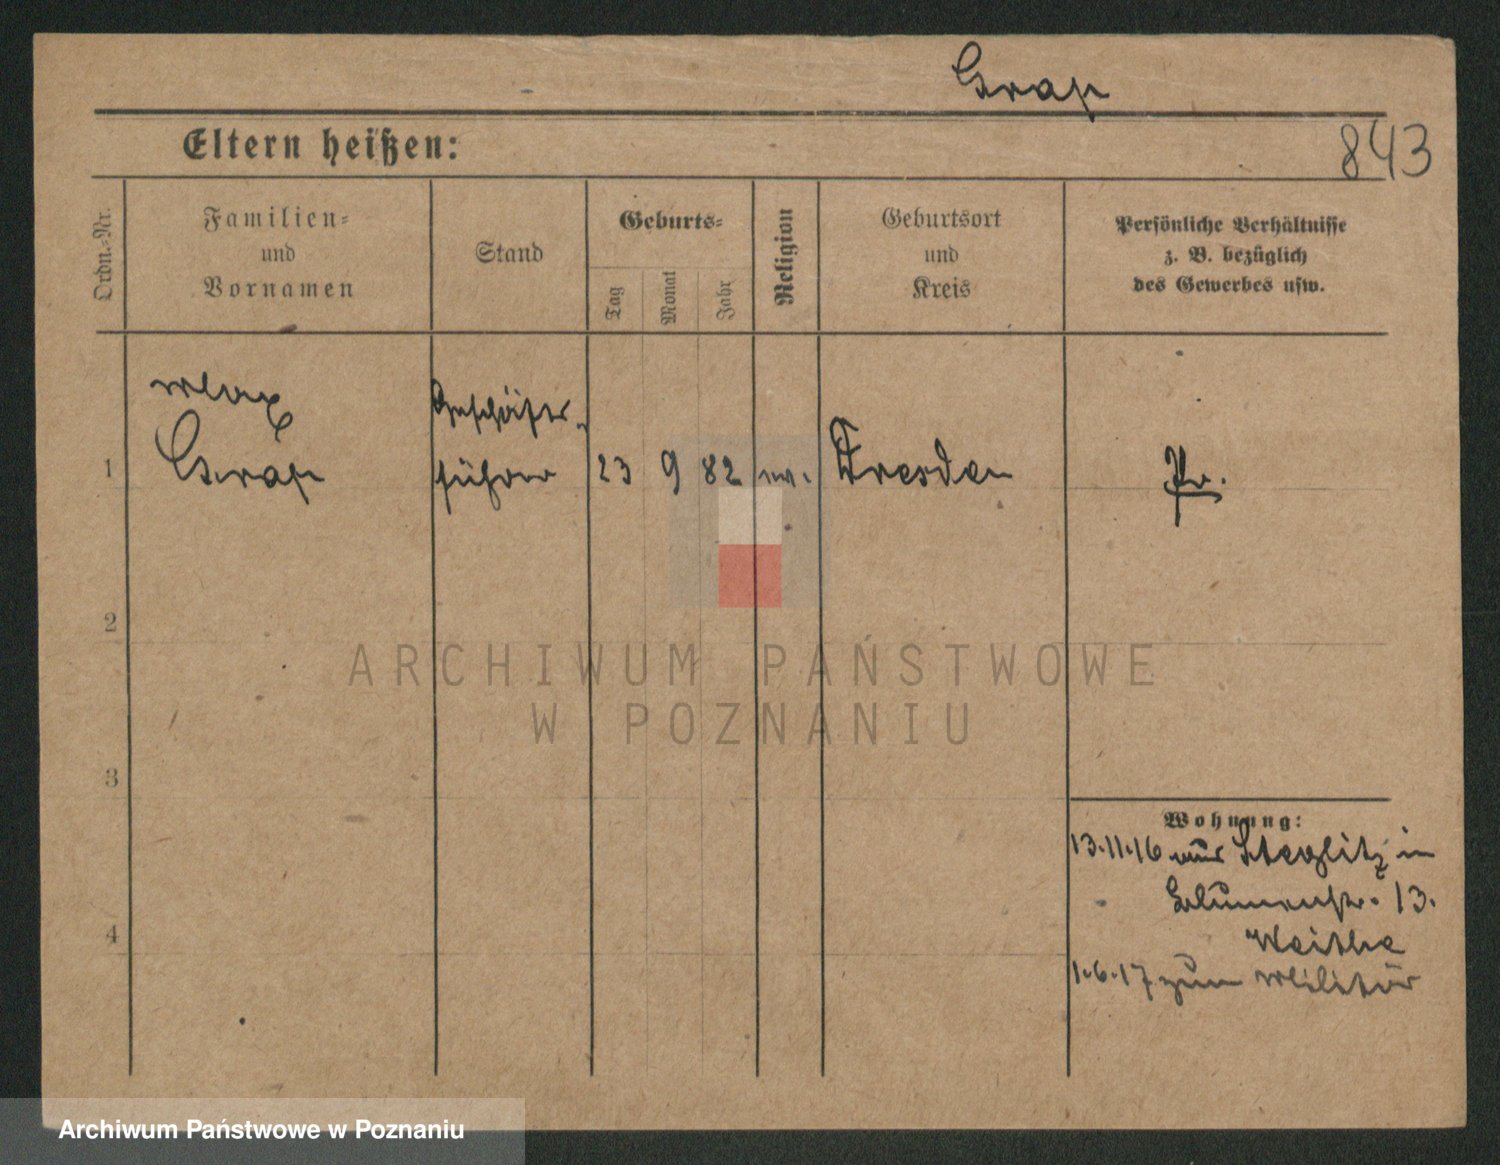 Grap
843
Eltern heißen:
Ordn.-Nr.
Familien-
und
Vornamen
Stand
Geburts-
Tag
Monat
Jahr
Religion
Geburtsort
und
Kreis
Persönliche Verhältnisse
z. B. bezüglich
des Gewerbes usw.
Max
Geschäfts-
1 Grap führer 23 9 82 ev. Dresden Pr.
2
3
4
Wohnung:
13.11.16 aus Steglitz in
Blumenstr. 13.
1.6.17 zum Militär
ARCHIWUM PAŃSTWOWE
W POZNANIU
Archiwum Państwowe w Poznaniu